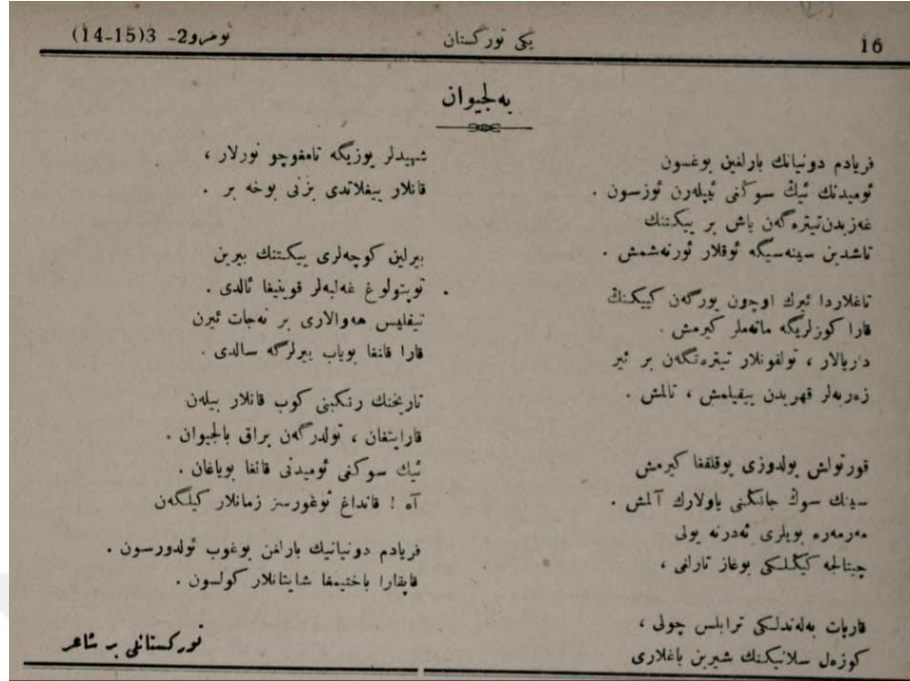 16 يڭى توركستان نومرو2- 3(15-14)
بەلجيوان
فريادم دونيانك بارلغين بوغسون
ئوميدنك ئيڭ سوڭنى ييپلەرن ئوزسون .
غەزبدن‌تيترەگەن ياش بر ييكتنك
تاشدين سينەسيگە ئوقلار ئورنەشمش .
تاغلاردا ئيرك اوچون يورگەن كييكنڭ
قارا كوزلريگە ماتەملر كيرمش .
داريالار ، تولقونلار تيترەتگەن بر ئير
زەربەلر قهريدن ييقيلمش ، تالمش .
قورتولش يولدوزى يوقلققا كيرمش
سينك سوڭ جانڭنى ياولارك آلمش .
مەرمەرە بويلرى ئەدرنە يولى
چيتالجە كيڭلكى بوغاز تارلغى ،
قاربات بەلەندلكى ترابلس چولى ،
كوزەل سلانيكنك شيرين باغلارى
شهيدلر يوزيگە تامغوچو نورلار ،
قانلار ييغلاندى بزنى يوخە بر .
بيرلين كوچەلرى ييكتنك بيرين
توپتولوغ غەلبەلر قوينيغا ئالدى .
تيفليس هەوالارى بر نەجات ئيرن
قارا قانغا بوياب ييرلرگە سالدى .
تاريخنك رنكينى كوب قانلار بيلەن
قارايتغان ، تولدرگەن براق بالجيوان .
ئيك سوكغى ئوميدنى قانغا بوياغان .
آه ! قانداغ ئوغورسز زمانلار كيلگەن
فريادم دونيانيك بارلغن بوغوب ئولدورسون .
قاپقارا باختيمغا شايتانلار كولسون .
توركستانلى بر شاعر